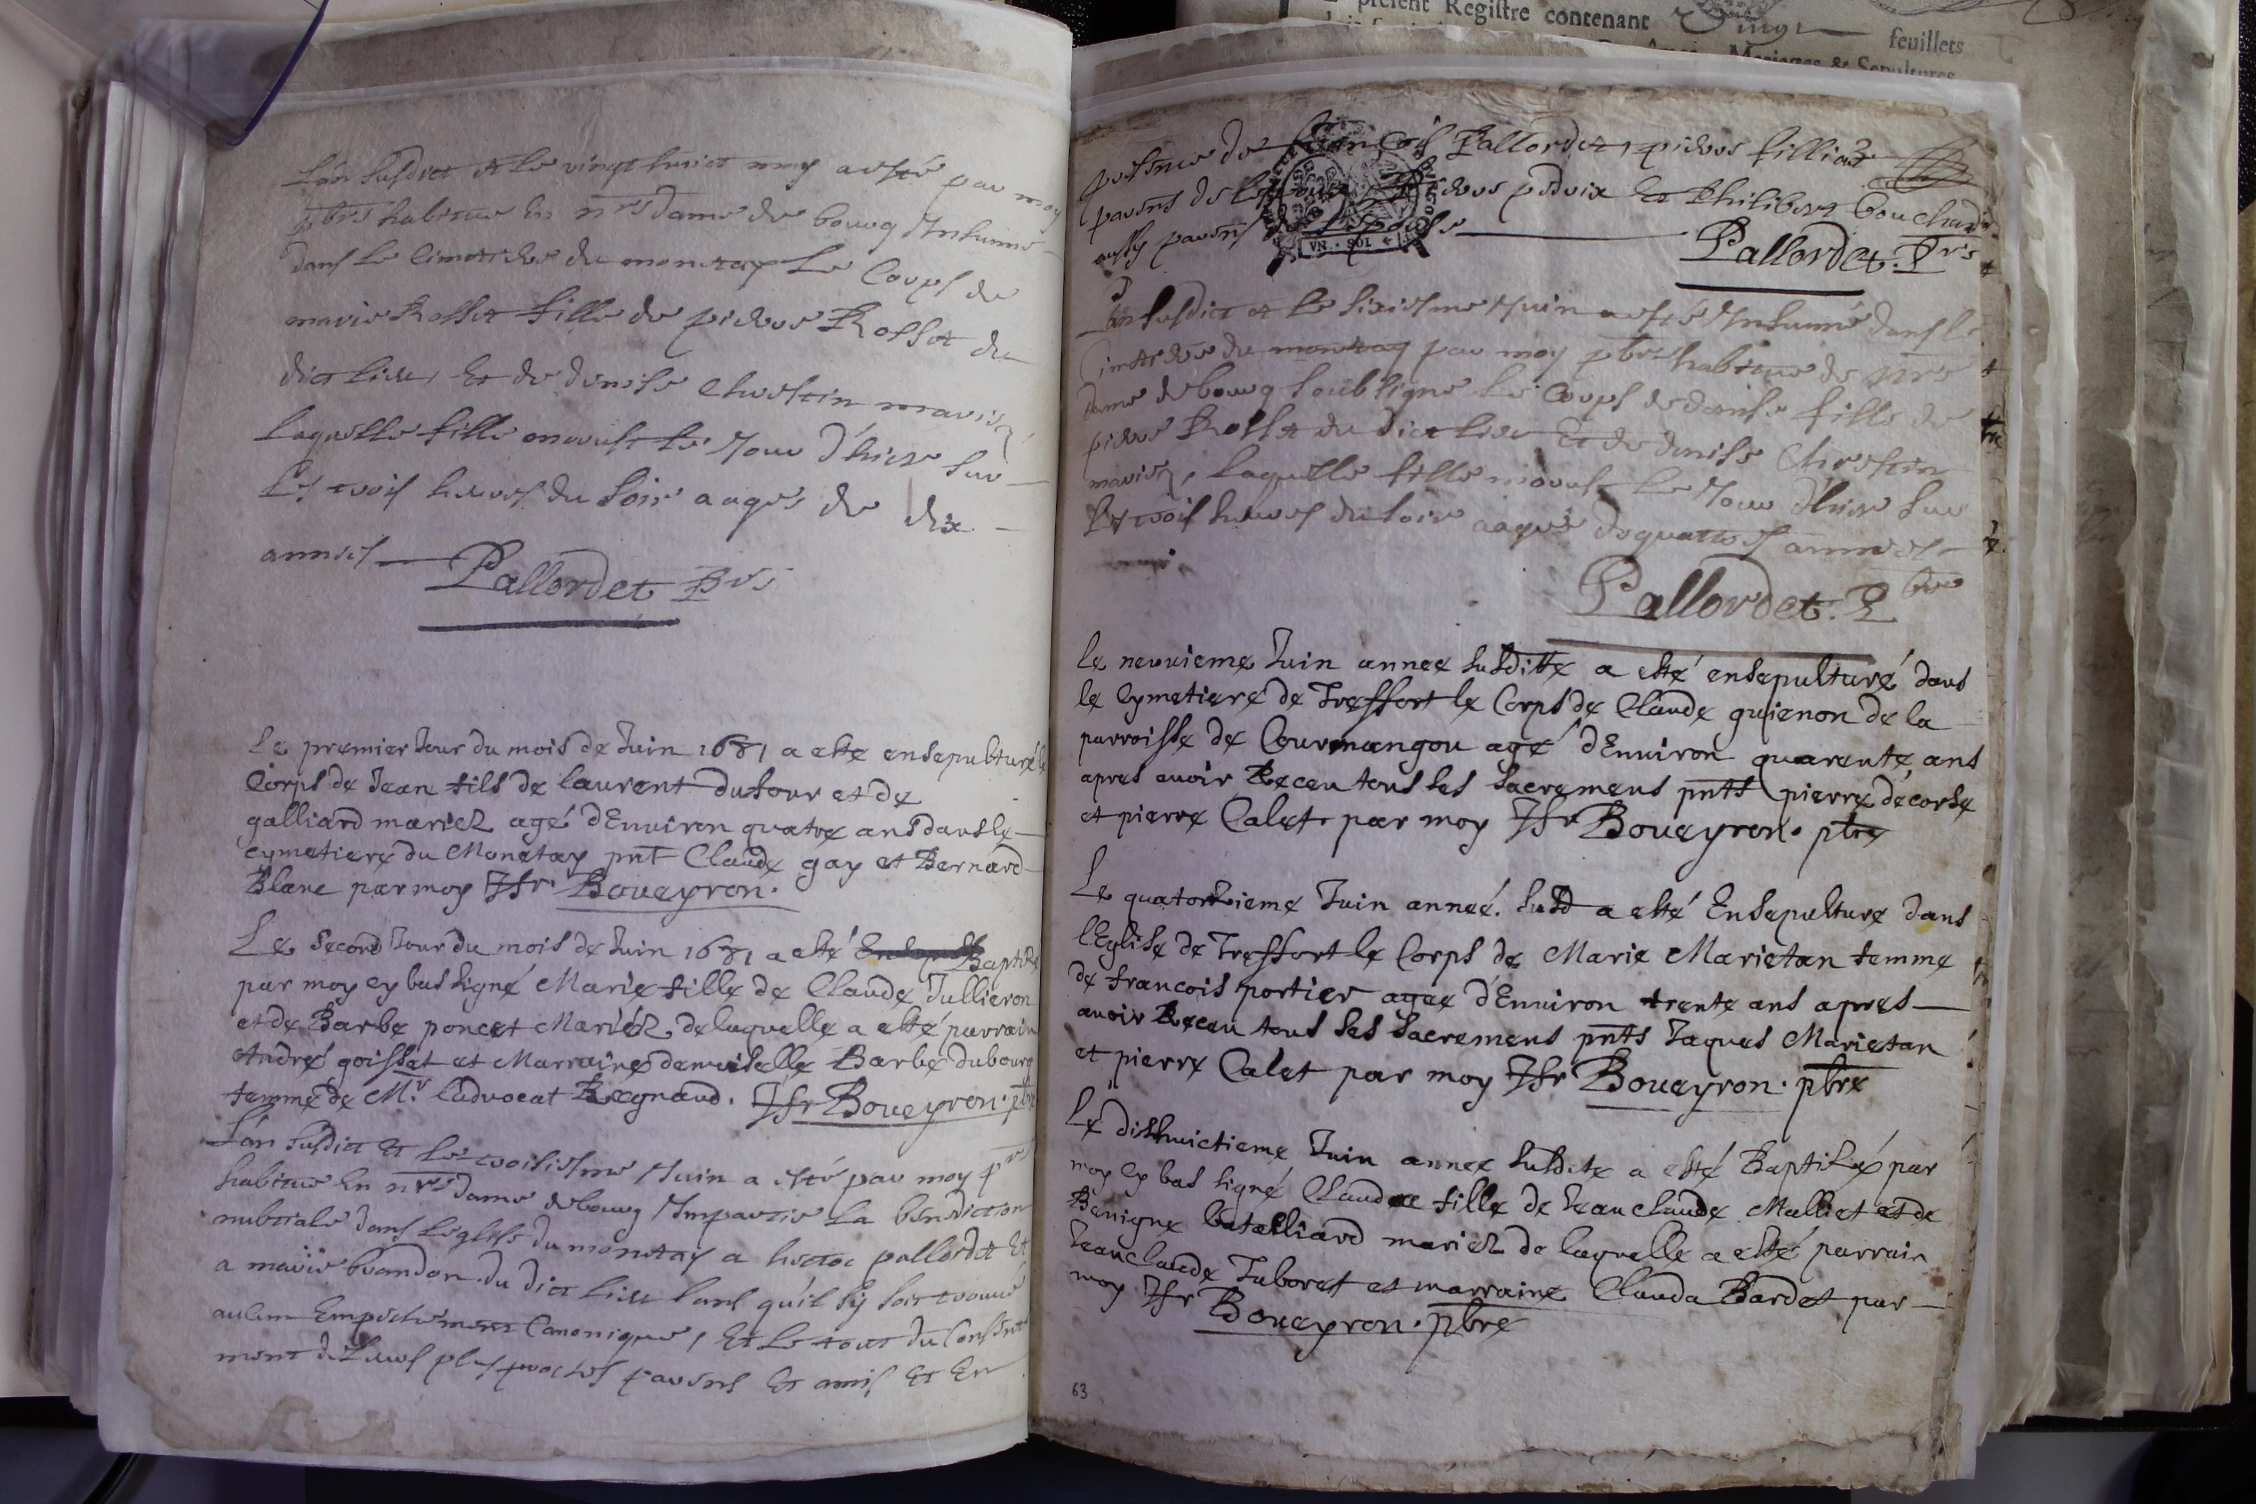 L'an susdict et le vingt huict may a esté par moy
pbre habitué en nre dame de bourg Inhumé
dans le Cimetiere du monetay le Corps de
marie Rosset fille de pierre Rosset du
dict lieu, Et de denise Chrestin mariez
laquelle fille mourust le Jour d'hier sur
les trois heures du soir aagee de dix
annees Pallordet Pbre
Le premier Jour du mois de Juin 1681 a esté ensepulturé le
Corps de Jean fils de laurent dufour et de
galliard mariez agé d'Enuiron quatre ans dans le
cymetiere du Monetay pnt Claude gay et Bernard
Blanc par moy Jfr Boueyron.
Le second Jour du mois de Juin 1681 a esté Baptisé
par moy cy bas signé Marie fille de Claude Jullieron
et de Barbe poncet Mariéz de laquelle a esté parrain
André goisset et Marraine demoiselle Barbe dubourg
femme de Mr l'advocat Regnaud. Jfr Boueyron. pbre
L'an susdict Et le troisiesme Juin a esté par moy pre
habitué en nre dame de bourg Impartie la benediction
nubtiale dans l'eglise du monetay a hector pallordet Et
a marie brandon du dict lieu sans qu'il sy soit trouué
aulcun Empechement Canonique, Et le tout du Consente
ment de leurs plus proches parens Et amis Et En
presence de françois Pallordet, pierre filliaz
parens de l'espoux pierre perdrix Et Philibert bouchard
aussy parens l'espouse
Pallordet. Pre
L'an susdict et le sixiesme Juin a esté Inhumé dans le
Cimetiere du monetay par moy pbre habitué de nre
dame de bourg soubsigné le Corps de denise fille de
pierre Rosset du dict lieu Et de denise Chrestin
mariez, laquelle fille mourust le Jour d'hier sur
les trois heures du soir aagee de quattres annees
Pallordet. Pbre
le neuuieme Juin annee susditte a esté ensepulturé dans
le Cymetiere de Treffort le Corps de Claude guienon de la
parroisse de Courmangou agé d'Enuiron quarente ans
apres auoir Receu tous ses sacremens pnts pierre décorse
et pierre Calet par moy Jfr Boueyron. pbre
Le quatorzieme Juin anneé susd a esté Ensepulture dans
l'Eglise de Treffort le Corps de Marie Marietan femme
de francois portier agee d'Enuiron trente ans apres
auoir Receu tous ses sacremens pnts Jaques Marietan
et pierre Calet par moy Jfr Boueyron. pbre
Le dishuictieme Juin annee susdite a esté Baptiséé par
moy cy bas signé Claudee fille de Jean claude Malliet et de
Benigne batalliard mariez de laquelle a esté parrain
Jean claude Taboret et marraine Clauda Bardet par
moy Jfr Boueyron. pbre
63
present Registre contenant Vingt feuillets
Mariages & Sepultures